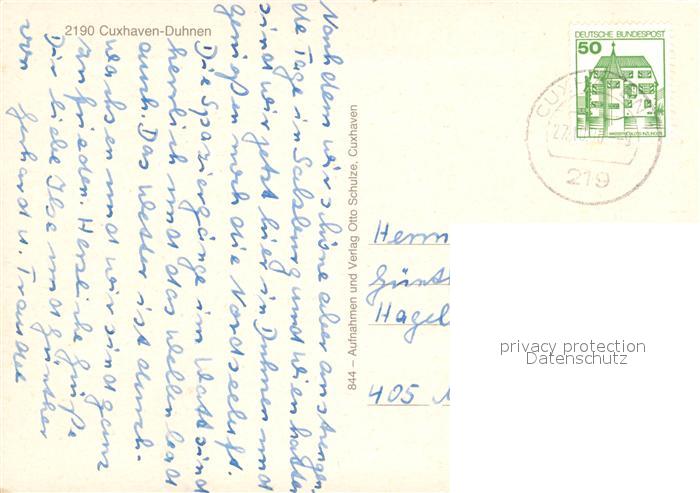 2190 Cuxhaven-Duhnen
Nach dem wir schöne aber anstrengen-
de Tage in Salzburg und Wien hatten
sind wir jetzt hier in Duhnen und
genießen noch die Nordseeluft.
Die Spaziergänge im Watt sind
herrlich und das Wellenbad
auch. Das Wetter ist durch-
wachsen und wir sind ganz
zufrieden. Herzliche Grüße
Dir liebe Ilse und Günther
von Gerhard u. Traudel
844 – Aufnahmen und Verlag Otto Schulze, Cuxhaven
DEUTSCHE BUNDESPOST
50
WASSERSCHLOSS INZLINGEN
CUXHAVEN
219
Herrn
Günth
Hagel
405
privacy protection
Datenschutz